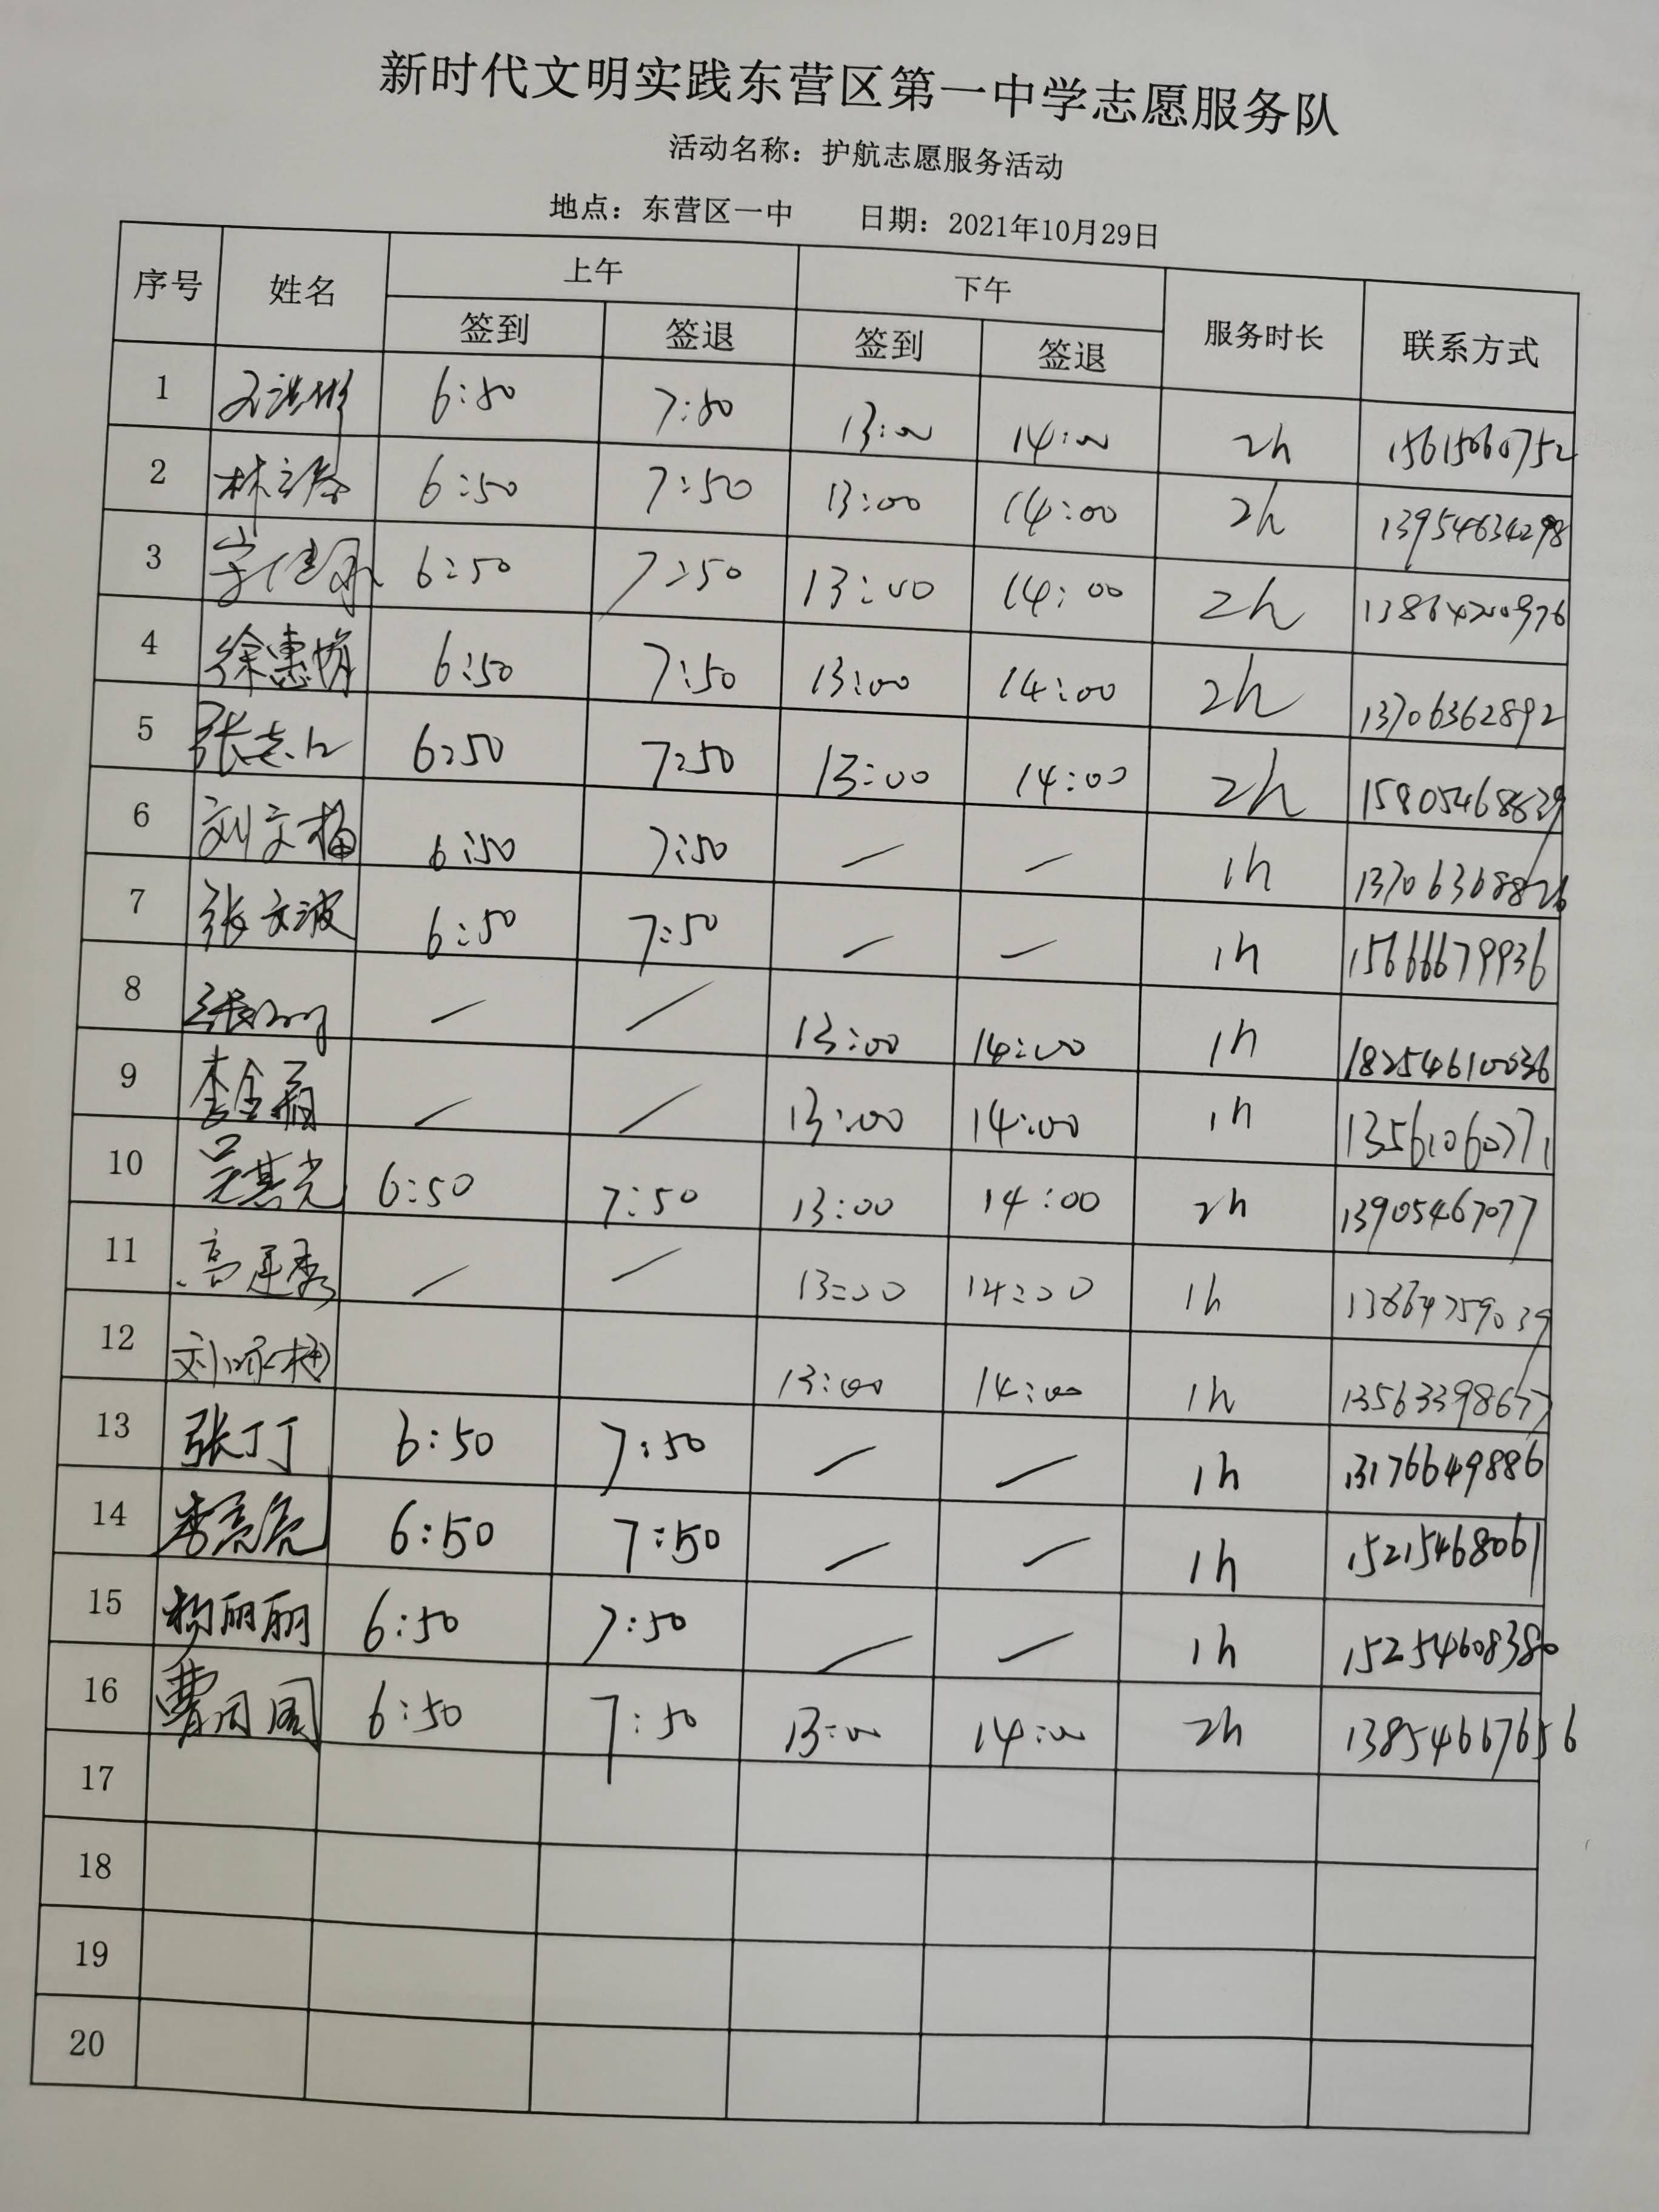 新时代文明实践东营区第一中学志愿服务队
活动名称：护航志愿服务活动
地点：东营区一中 日期：2021年10月29日
序号 姓名 上午 下午 服务时长 联系方式
签到 签退 签到 签退
1 6:50 7:50 13:00 14:00 2h 15615060752
2 6:50 7:50 13:00 14:00 2h 13954634298
3 6:50 7:50 13:00 14:00 2h 13864200976
4 徐惠娟 6:50 7:50 13:00 14:00 2h 13706362892
5 6:50 7:50 13:00 14:00 2h 15805468839
6 刘文梅 6:50 7:50 — — 1h 13706368826
7 张文波 6:50 7:50 — — 1h 15666679936
8 — — 13:00 14:00 1h 18254610036
9 — — 13:00 14:00 1h 13561060771
10 吴其光 6:50 7:50 13:00 14:00 2h 13905467077
11 — — 13:00 14:00 1h 13864759039
12 13:00 14:00 1h 13563398677
13 张丁丁 6:50 7:50 — — 1h 13176649886
14 李亮亮 6:50 7:50 — — 1h 15215468061
15 杨丽丽 6:50 7:50 — — 1h 15254608380
16 6:50 7:50 13:00 14:00 2h 13854667656
17
18
19
20